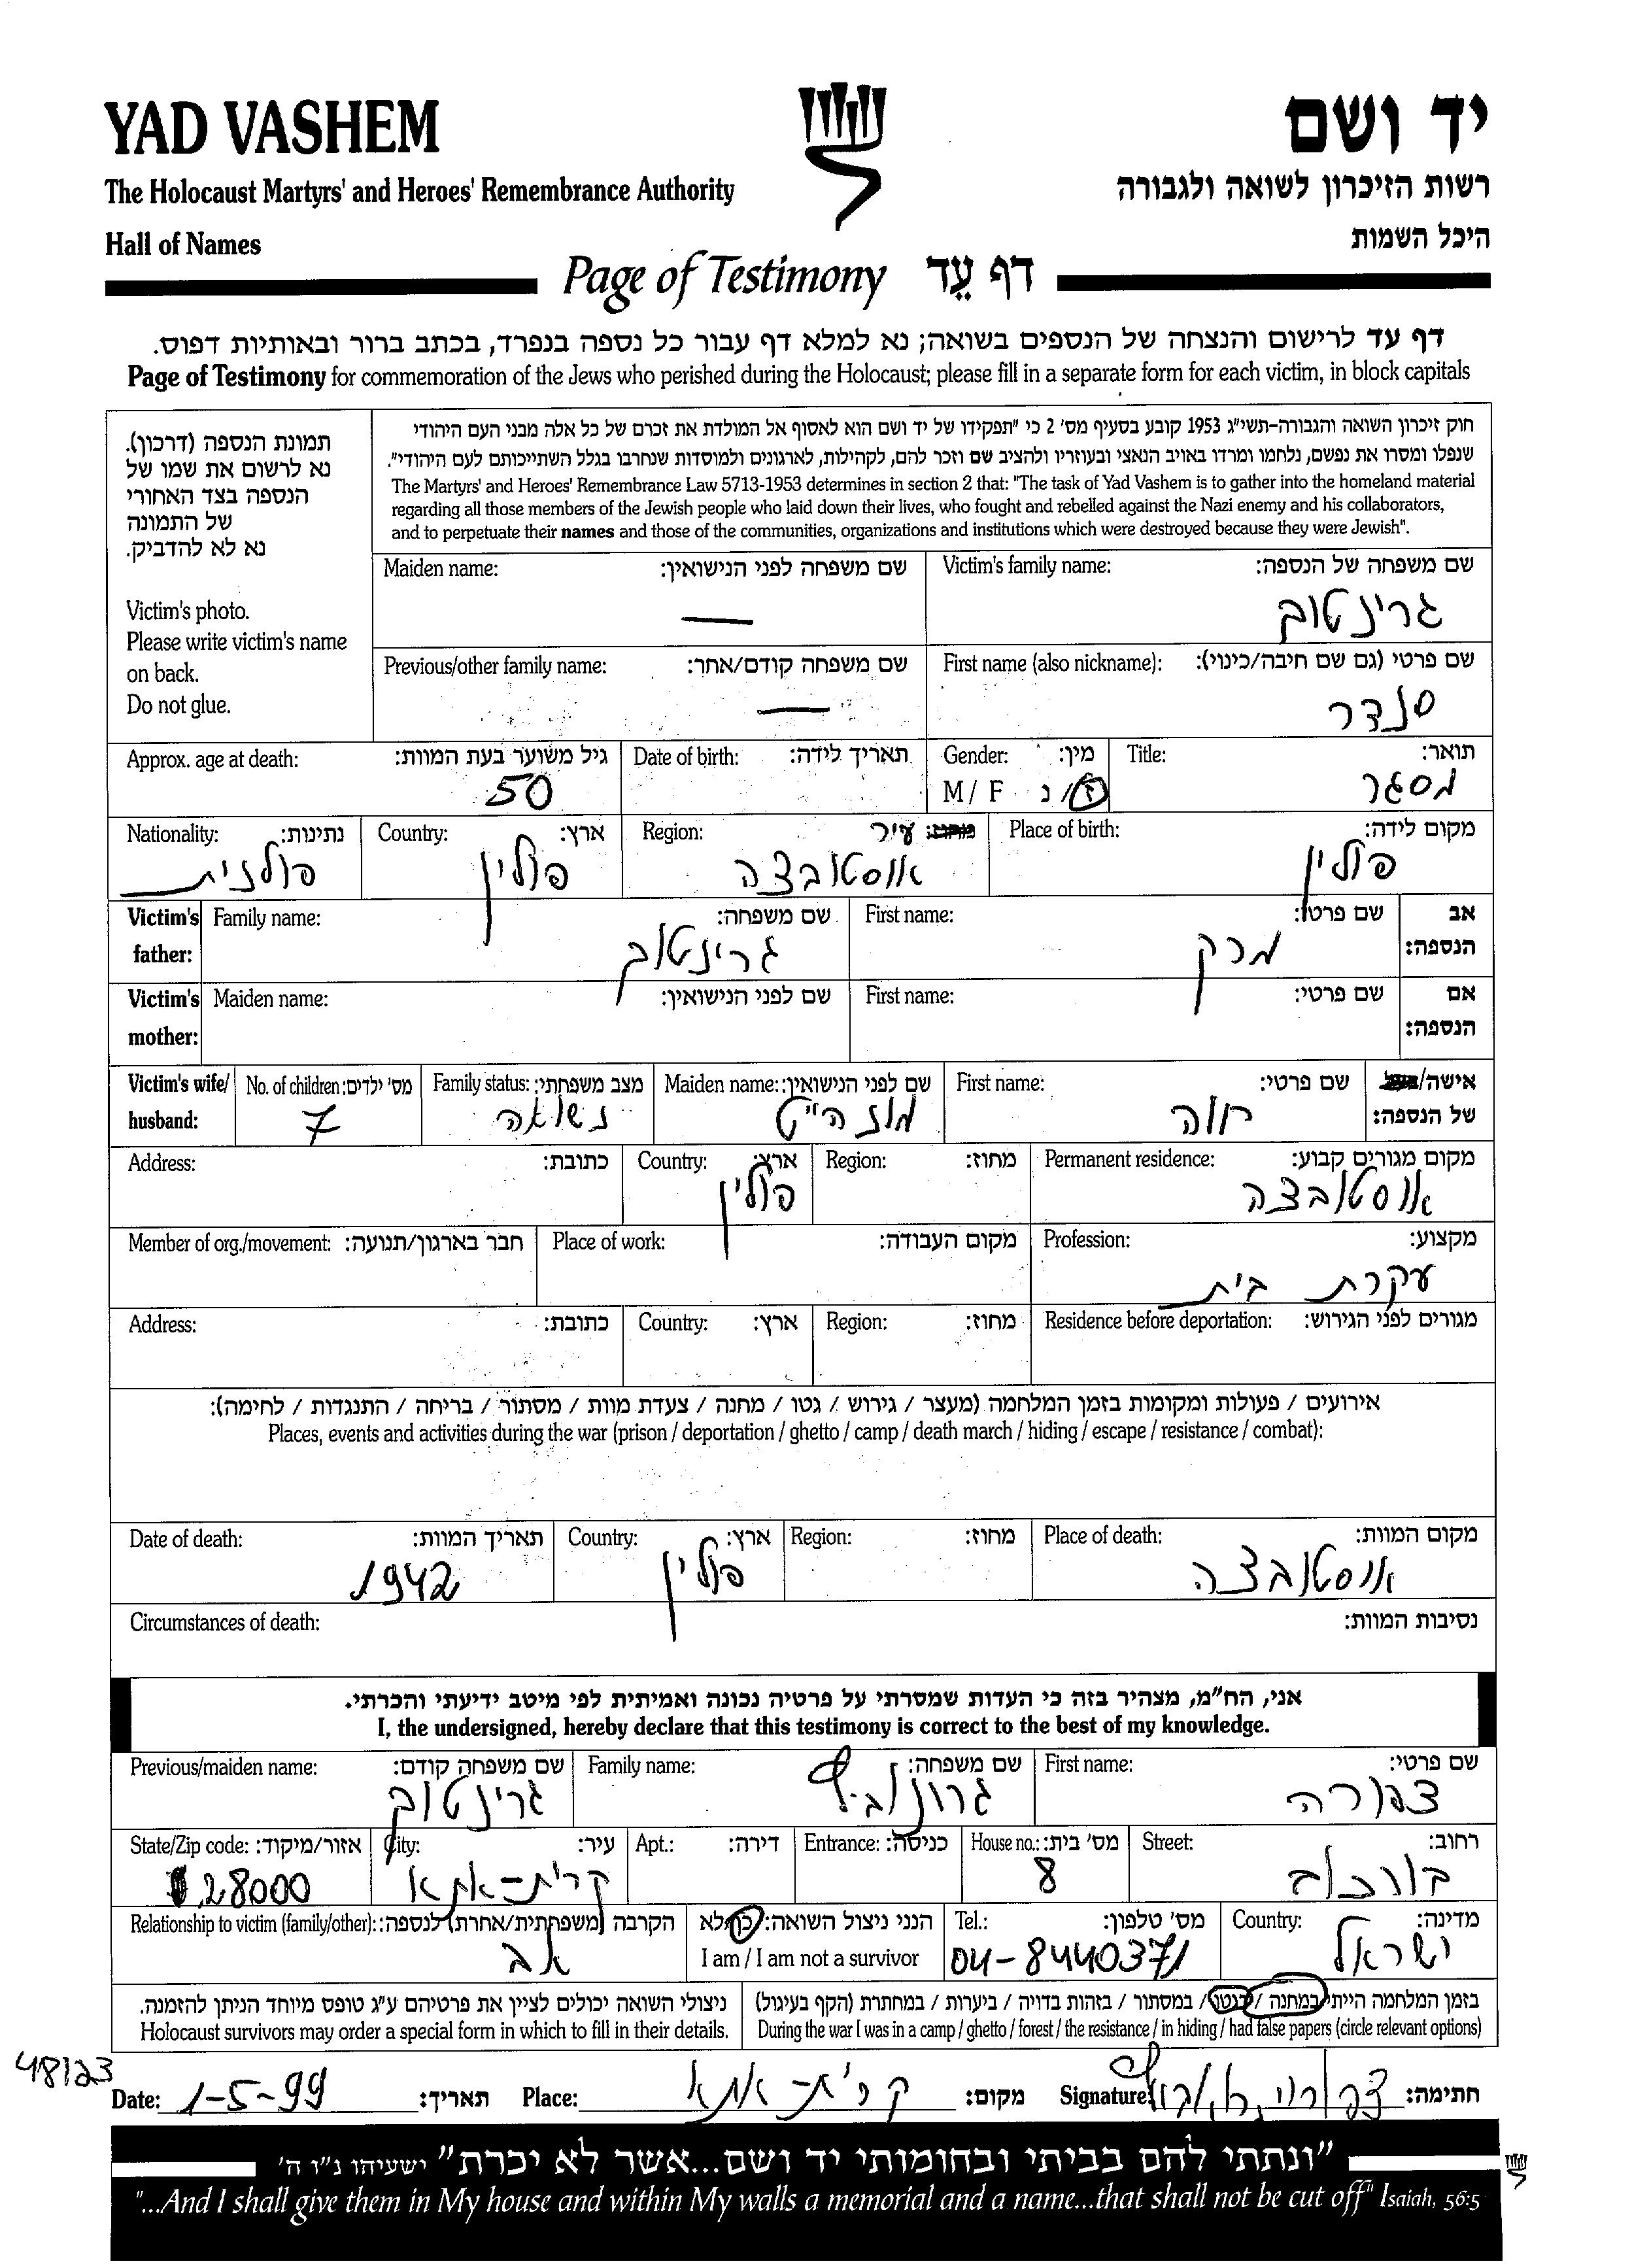 YAD VASHEM יד ושם
The Holocaust Martyrs' and Heroes' Remembrance Authority רשות הזיכרון לשואה ולגבורה
Hall of Names היכל השמות
Page of Testimony דף עֵד
דף עד לרישום והנצחה של הנספים בשואה; נא למלא דף עבור כל נספה בנפרד, בכתב ברור ובאותיות דפוס.
Page of Testimony for commemoration of the Jews who perished during the Holocaust; please fill in a separate form for each victim, in block capitals
תמונת הנספה (דרכון).
נא לרשום את שמו של
הנספה בצד האחורי
של התמונה
נא לא להדביק.
Victim's photo.
Please write victim's name
on back.
Do not glue.
חוק זיכרון השואה והגבורה-תשי"ג 1953 קובע בסעיף מס' 2 כי "תפקידו של יד ושם הוא לאסוף אל המולדת את זכרם של כל אלה מבני העם היהודי
שנפלו ומסרו את נפשם, נלחמו ומרדו באויב הנאצי ובעוזריו ולהציב שם וזכר להם, לקהילות, לארגונים ולמוסדות שנחרבו בגלל השתייכותם לעם היהודי".
The Martyrs' and Heroes' Remembrance Law 5713-1953 determines in section 2 that: "The task of Yad Vashem is to gather into the homeland material
regarding all those members of the Jewish people who laid down their lives, who fought and rebelled against the Nazi enemy and his collaborators,
and to perpetuate their names and those of the communities, organizations and institutions which were destroyed because they were Jewish".
Maiden name: שם משפחה לפני הנישואין: Victim's family name: שם משפחה של הנספה:
— גרינטוך
Previous/other family name: שם משפחה קודם/אחר: First name (also nickname): שם פרטי (גם שם חיבה/כינוי):
— סנדר
Approx. age at death: גיל משוער בעת המוות: Date of birth: תאריך לידה: Gender: מין: Title: תואר:
50 M / F ז / נ מסגר
Nationality: נתינות: Country: ארץ: Region: עיר Place of birth: מקום לידה:
פולנית פולין אוסטובצה פולין
Victim's father: Family name: שם משפחה: First name: שם פרטי: אב הנספה:
גרינטוך מרק
Victim's mother: Maiden name: שם לפני הנישואין: First name: שם פרטי: אם הנספה:
Victim's wife/ husband: No. of children: מס' ילדים: Family status: מצב משפחתי: Maiden name: שם לפני הנישואין: First name: שם פרטי: אישה/ של הנספה:
7 נשואה חוה
Address: כתובת: Country: ארץ: Region: מחוז: Permanent residence: מקום מגורים קבוע:
פולין אוסטובצה
Member of org./movement: חבר בארגון/תנועה: Place of work: מקום העבודה: Profession: מקצוע:
עקרת בית
Address: כתובת: Country: ארץ: Region: מחוז: Residence before deportation: מגורים לפני הגירוש:
אירועים / פעולות ומקומות בזמן המלחמה (מעצר / גירוש / גטו / מחנה / צעדת מוות / מסתור / בריחה / התנגדות / לחימה):
Places, events and activities during the war (prison / deportation / ghetto / camp / death march / hiding / escape / resistance / combat):
Date of death: תאריך המוות: Country: ארץ: Region: מחוז: Place of death: מקום המוות:
1942 פולין אוסטובצה
Circumstances of death: נסיבות המוות:
אני, הח"מ, מצהיר בזה כי העדות שמסרתי על פרטיה נכונה ואמיתית לפי מיטב ידיעתי והכרתי.
I, the undersigned, hereby declare that this testimony is correct to the best of my knowledge.
Previous/maiden name: שם משפחה קודם: Family name: שם משפחה: First name: שם פרטי:
גרינטוך צפורה
State/Zip code: אזור/מיקוד: City: עיר: Apt.: דירה: Entrance: כניסה: House no.: מס' בית: Street: רחוב:
28000 קרית-אתא 8 בורכוב
Relationship to victim (family/other): הקרבה (משפחתית/אחרת) לנספה: הנני ניצול השואה: כן/לא Tel.: מס' טלפון: Country: מדינה:
אב I am / I am not a survivor 04-8440371 ישראל
ניצולי השואה יכולים לציין את פרטיהם ע"ג טופס מיוחד הניתן להזמנה. בזמן המלחמה הייתי במחנה / בגטו / במסתור / בזהות בדויה / ביערות / במחתרת (הקף בעיגול)
Holocaust survivors may order a special form in which to fill in their details. During the war I was in a camp / ghetto / forest / the resistance / in hiding / had false papers (circle relevant options)
48123
Date: 1-5-99 תאריך: Place: קרית-אתא מקום: Signature: חתימה:
"ונתתי להם בביתי ובחומותי יד ושם...אשר לא יכרת" ישעיהו נ"ו ה'
"...And I shall give them in My house and within My walls a memorial and a name...that shall not be cut off" Isaiah, 56:5